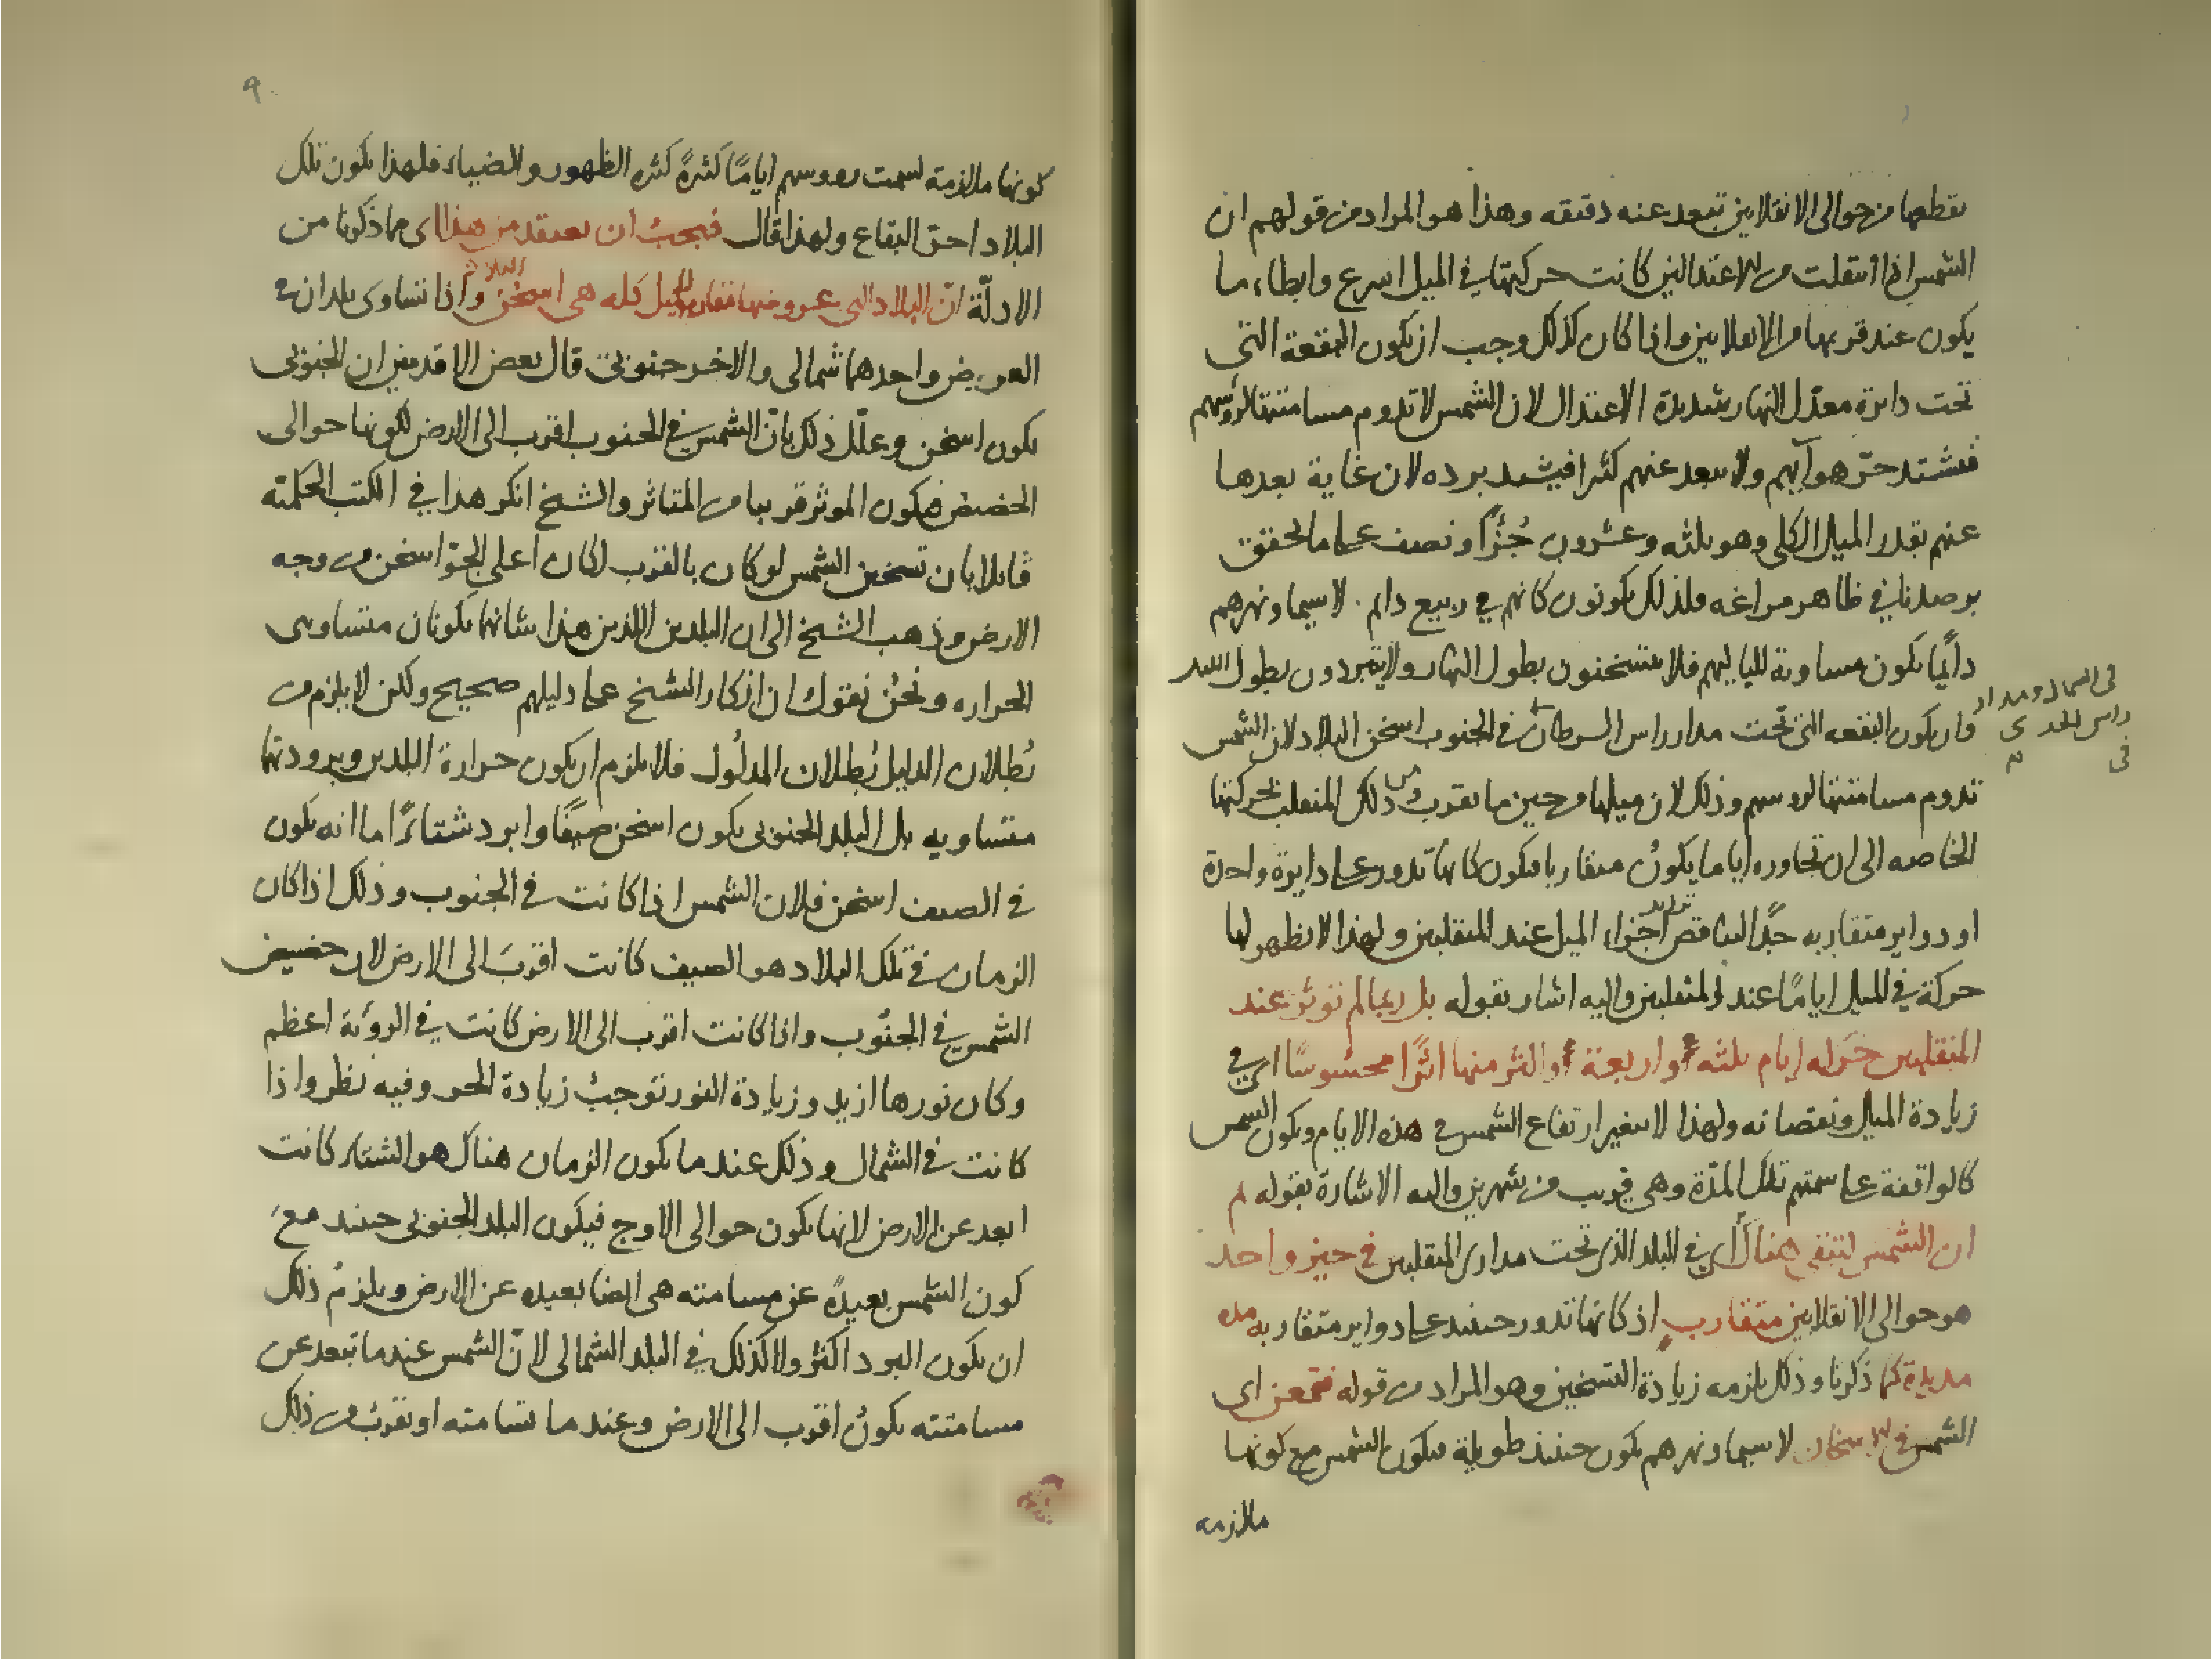 يقطعها من حوالى الانقلابين تبعد عنه دقيقه وهذا هو المراد من قولهم ان
الشمس اذا انتقلت من الاعتدالين كانت حركتها في الميل اسرع وابطاء ما
يكون عند قربها من الانقلابين واذا كان كذلك وجب ان يكون البقعة التى
تحت دايرة معدل النهار شديدة الاعتدال لان الشمس لا تدوم مسامتتها لروسهم
فيشتد حرّ هوآيهم ولا يبعد عنهم كثيرا فيشتد برده لان غاية بعدها
عنهم بقدر الميل الكلى وهو ثلثه وعشرون جُزًا ونصف على ما تحقق
برصدنا في ظاهر مراغه فلذلك يكونون كانهم في ربيع دايم . لا سيما ونهرهم
دأيمًا يكون مساوية للياليهم فلا يتسخنون بطول النهار ولا يتبردون بطول الليل
وان يكون البقعه التى تحت مدار راس السرطان في الجنوب اسخن البلاد لان الشمس
في الشمال ومدار
راس الجدى
في
تدوم مسامتتها لروسهم وذلك لان ميلها من حين ما يقرب من ذلك المنقلب بحركتها
الخاصه الى ان تجاوره اياما يكونُ متقاربا فيكون كانها تدور على دايرة واحدة
او دواير متقاربه جدًّا لتناقص تزايد اجزاء الميل عند المنقلبين ولهذا لا يظهر لها
حركة في الميل ايامًا عند المنقلبين واليه اشار بقوله بل ربما لم تؤثر عند
المنقلبين حركه ايام ثلثه أو اربعة أو اكثر منها اثرًا محسوسًا اى في
زيادة الميل ونقصانه ولهذا لا يتغير ارتفاع الشمس في هذه الايام ويكون الشمس
كالواقفة على سمتهم تلك المدّة وهى قريب من شهرين واليه الاشارة بقوله ثم
ان الشمس لتبقى هناك أى في البلد الذى تحت مدارى المنقلبين في حيز واحد
هو حوالى الانقلابين متقارب اذ كانها تدور حينئذ على دواير متقاربه مده
مديدة كما ذكرنا وذلك يلزمه زيادة التسخين وهو المراد من قوله فتمعن اى
الشمس في الاسخان لا سيما ونهرهم يكون حينئذ طويلة فيكون الشمس مع كونها
ملازمه
٩
كونها ملازمة لسمت روسهم ايامًا كثيرةً كثيره الظهور والضياء فلهذا يكون تلك
البلاد احرّ البقاع ولهذا قال فيجبُ ان يعتقد من هذا اى مما ذكرنا من
الادلّة انّ البلاد التى عروضها تقارب الميل كله هى اسخن البلاد واذا تساوى بلدان في
العرض واحدهما شمالى والاخر جنوبيّ قال بعض الاقدمين ان الجنوبى
يكون اسخن وعلّل ذلك بانّ الشمس في الجنوب اقرب الى الارض لكونها حوالى
الحضيض فيكون الموثر قريبا من المتاثر والشيخ انكر هذا في الكتب الحكمته
قايلا بان تسخين الشمس لو كان بالقرب لكان اعلى الجوّ اسخن من وجه
الارض وذهب الشيخ الى ان البلدين اللذين هذا شانهما يكونان متساويى
الحراره ونحنُ نقول ان انكار الشيخ على دليلهم صحيح ولكن لا يلزم من
بُطلان الدليل بُطلان المدلُول فلا يلزم ان يكون حرارة البلدين وبرودتها
متساويه بل البلد الجنوبى يكون اسخن صيفًا وابرد شتاءًا اما انه يكون
في الصيف اسخن فلان الشمس اذا كانت في الجنوب وذلك اذا كان
الزمان في تلك البلاد هو الصيف كانت اقربَ الى الارض لان حضيض
الشمس في الجنُوب واذا كانت اقرب الى الارض كانت في الرؤية اعظم
وكان نورها ازيد وزيادة النور توجبُ زيادة الحر وفيه نظر واذا
كانت في الشمال وذلك عند ما يكون الزمان هناك هو الشتاء كانت
ابعد عن الارض لانها يكون حوالى الاوج فيكون البلد الجنوبى حينئذ معَ
كون الشمس بعيدةً عن مسامتته هى ايضا بعيده عن الارض ويلزمُ ذلك
ان يكون البرد اكثر ولا كذلك في البلد الشمالى لانّ الشمس عند ما تبعد عن
مسامتته يكونُ اقرب الى الارض وعند ما تسامته او تقربُ من ذلك